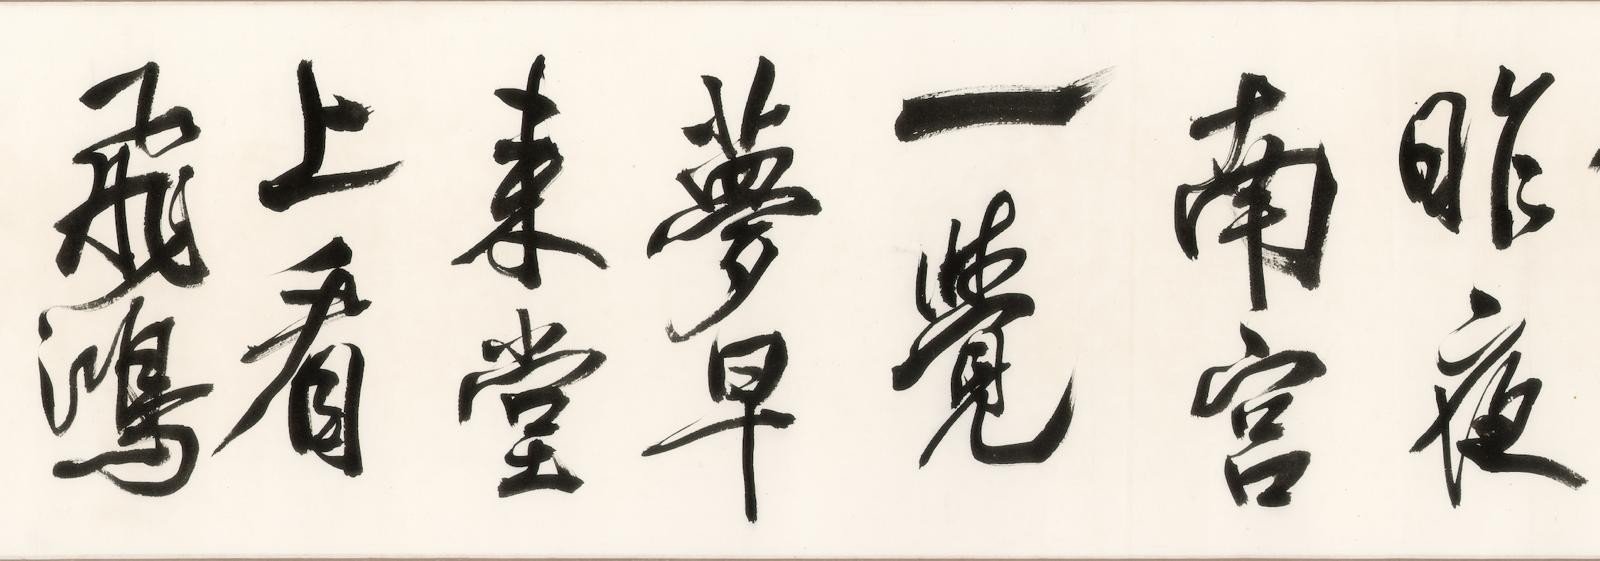 昨夜
南宫
一覺
夢早
来堂
上看
飛鴻